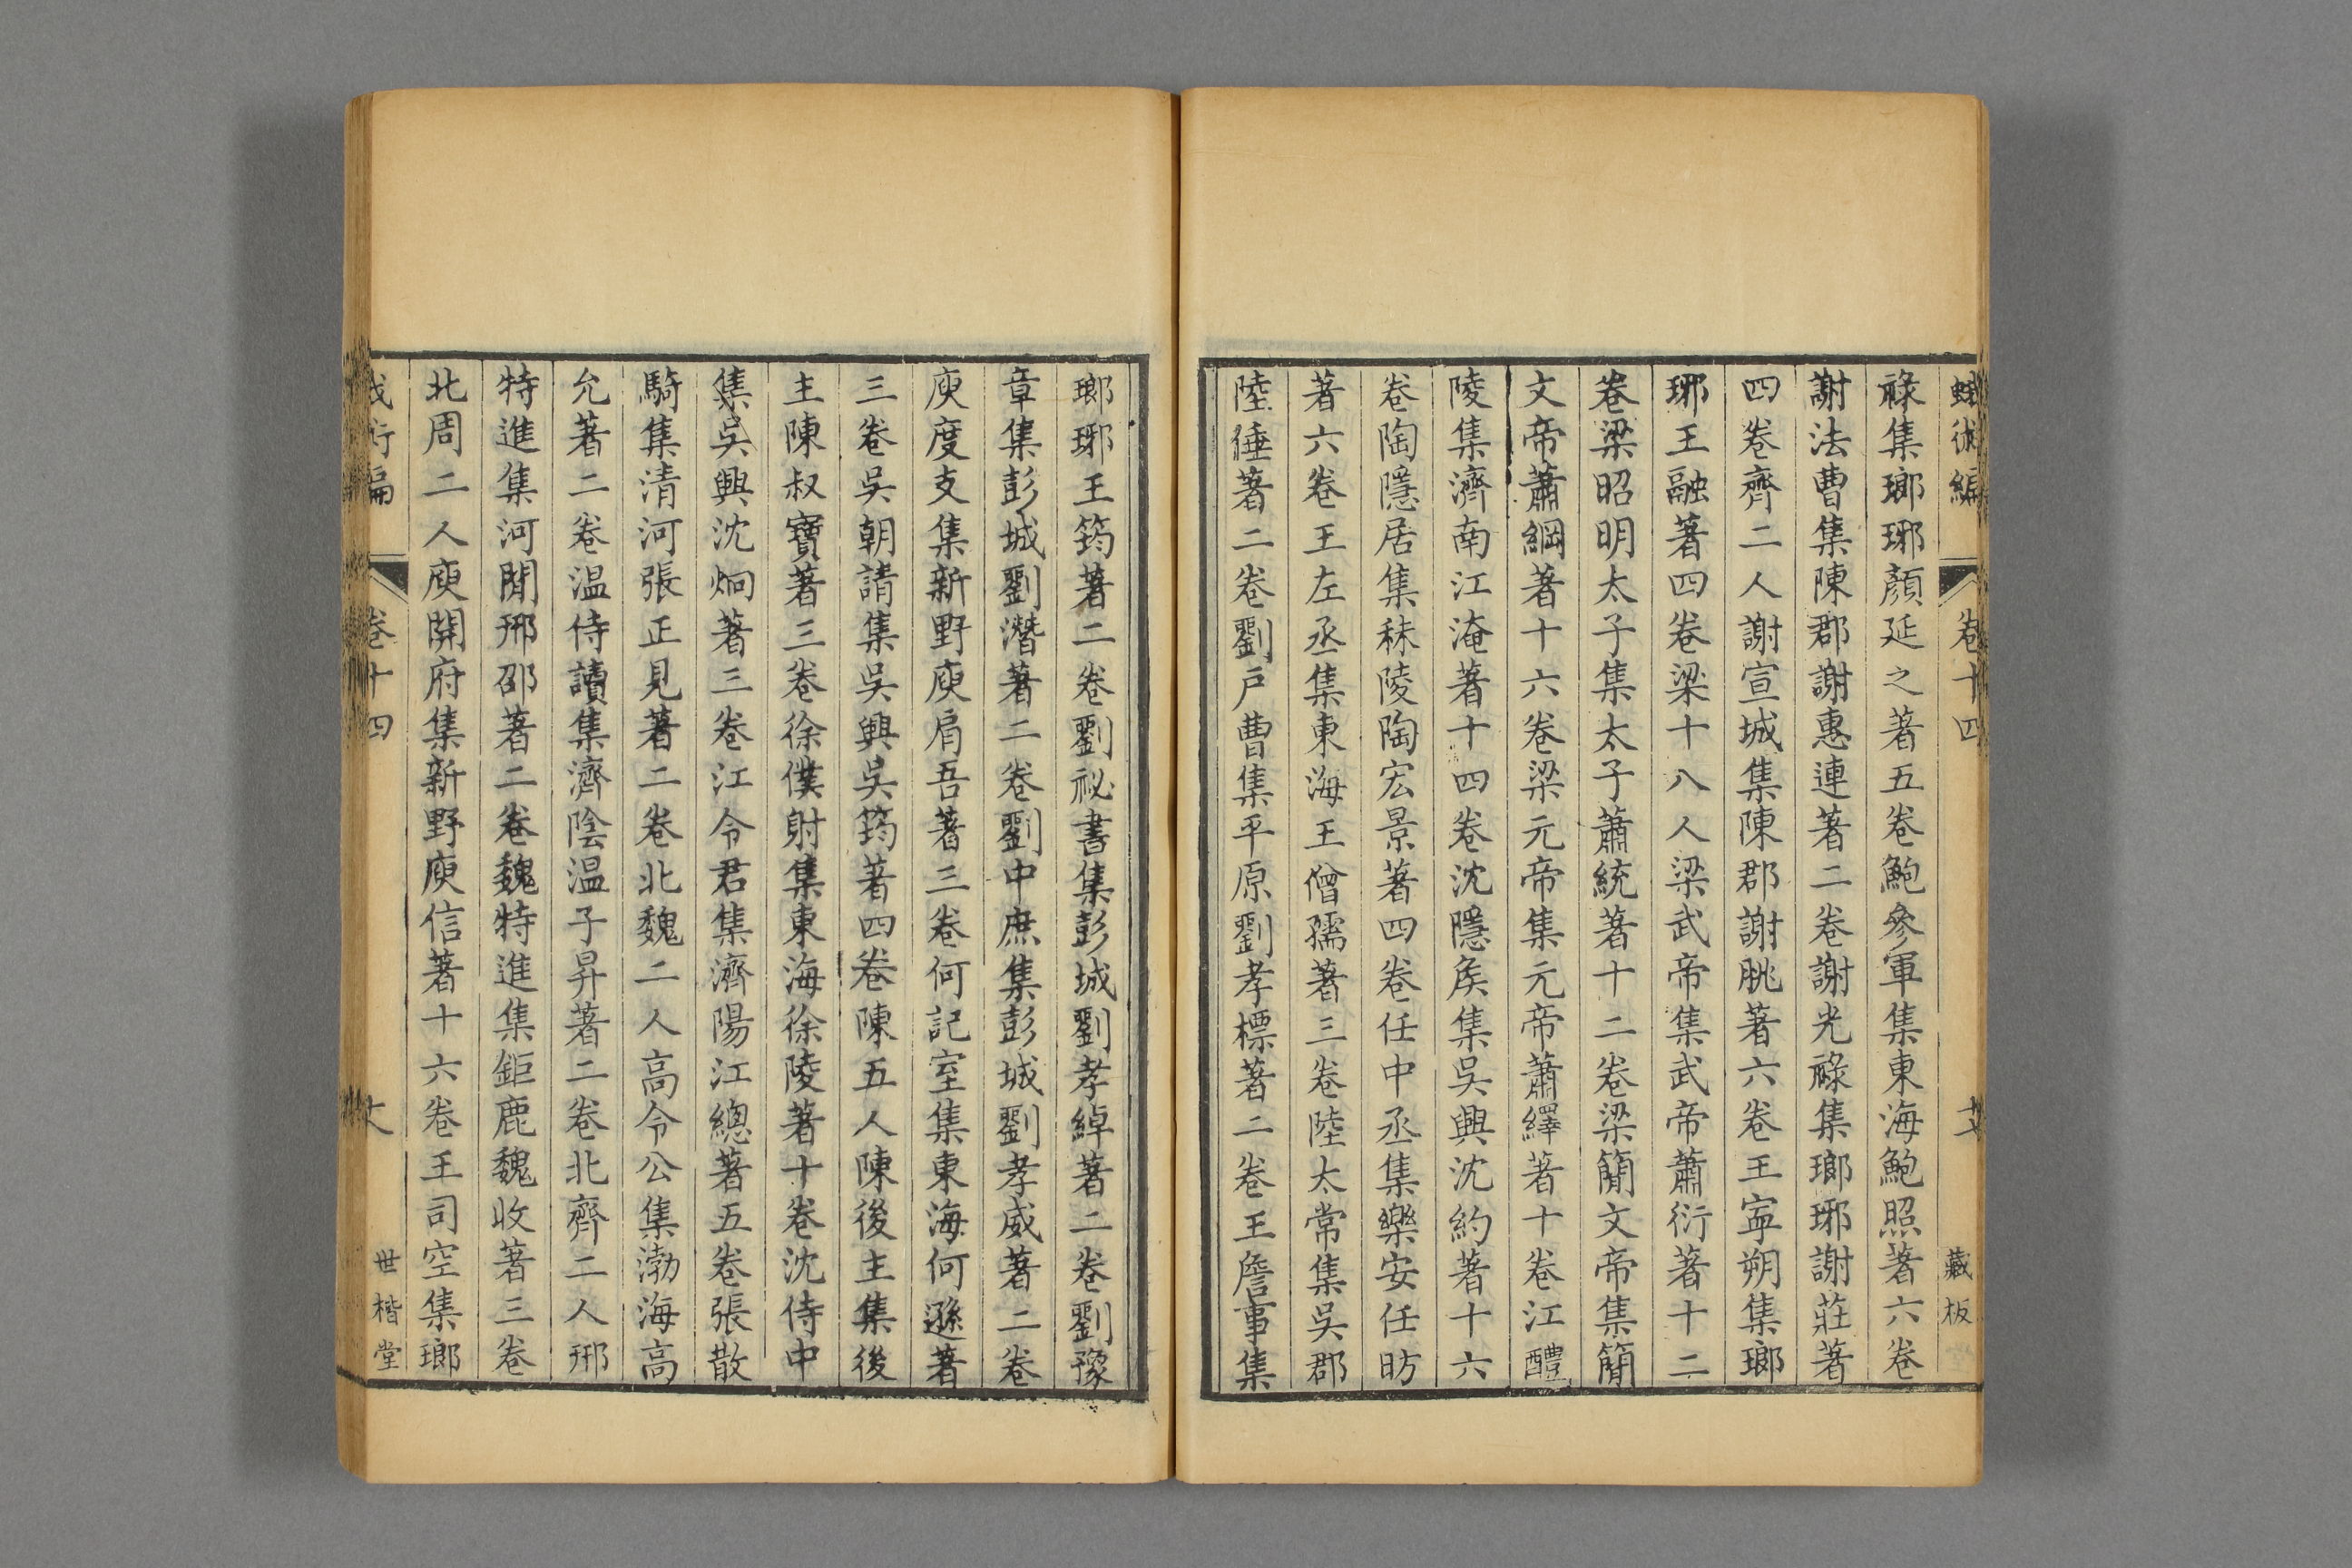 蛾術編 卷十四 藏板
祿集瑯琊顏延之著五卷鮑參軍集東海鮑照著六卷
謝法曹集陳郡謝惠連著二卷謝光祿集瑯琊謝莊著
四卷齊二人謝宣城集陳郡謝朓著六卷王寧朔集瑯
琊王融著四卷梁十八人梁武帝集武帝蕭衍著十二
卷梁昭明太子集太子蕭統著十二卷梁簡文帝集簡
文帝蕭綱著十六卷梁元帝集元帝蕭繹著十卷江醴
陵集濟南江淹著十四卷沈隱矦集吳興沈約著十六
卷陶隱居集秣陵陶宏景著四卷任中丞集樂安任昉
著六卷王左丞集東海王僧孺著三卷陸太常集吳郡
陸倕著二卷劉戶曹集平原劉孝標著二卷王詹事集
瑯琊王筠著二卷劉祕書集彭城劉孝綽著二卷劉豫
章集彭城劉潛著二卷劉中庶集彭城劉孝威著二卷
庾度支集新野庾肩吾著三卷何記室集東海何遜著
三卷吳朝請集吳興吳筠著四卷陳五人陳後主集後
主陳叔寶著三卷徐僕射集東海徐陵著十卷沈侍中
集吳興沈炯著三卷江令君集濟陽江總著五卷張散
騎集清河張正見著二卷北魏二人高令公集渤海高
允著二卷溫侍讀集濟陰溫子昇著二卷北齊二人邢
特進集河閒邢邵著二卷魏特進集鉅鹿魏收著三卷
北周二人庾開府集新野庾信著十六卷王司空集瑯
卷十四 世楷堂